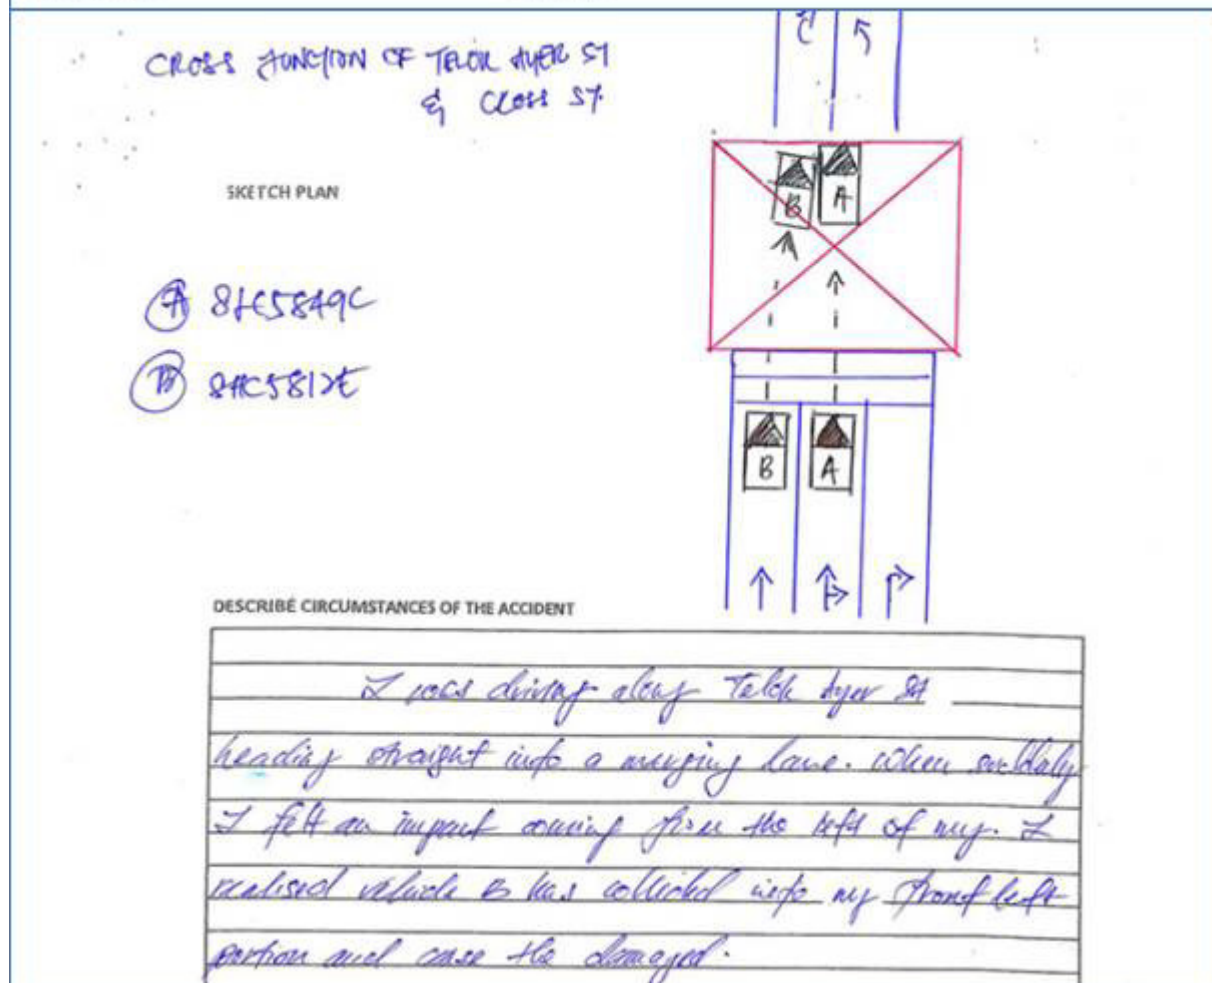 CROSS JUNCTION OF TELOK AYER ST
& CROSS ST.
SKETCH PLAN
A
B
A SLE5849C
B SHC5812E
B
A
DESCRIBE CIRCUMSTANCES OF THE ACCIDENT
I was driving along Telok Ayer St
heading straight into a merging lane. When suddenly
I felt an impact coming from the left of my. I
realised vehicle B has collided into my front left
portion and case the damaged.